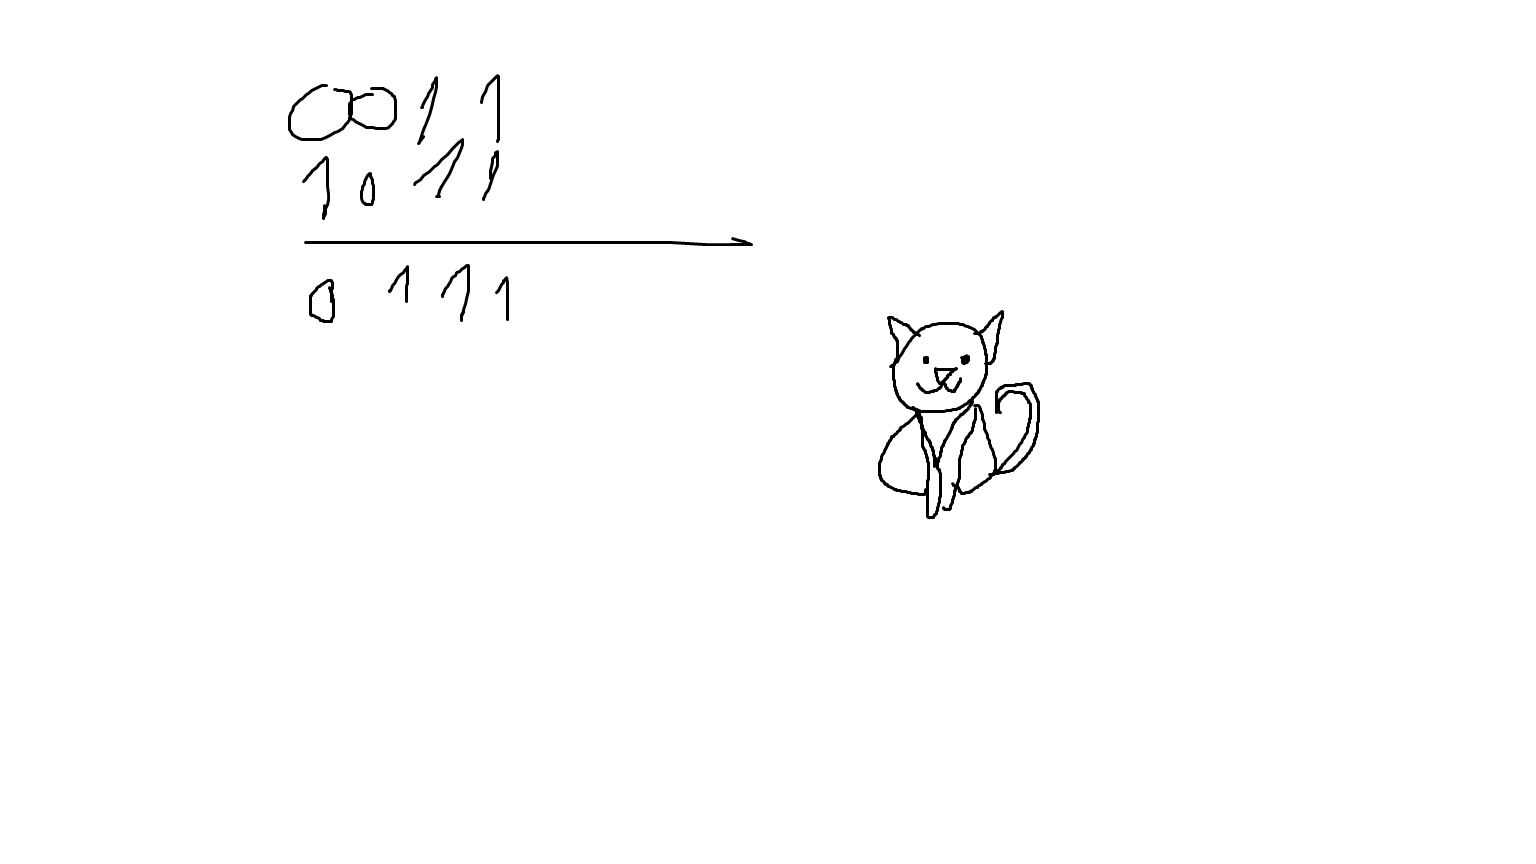 0011
1011
0111